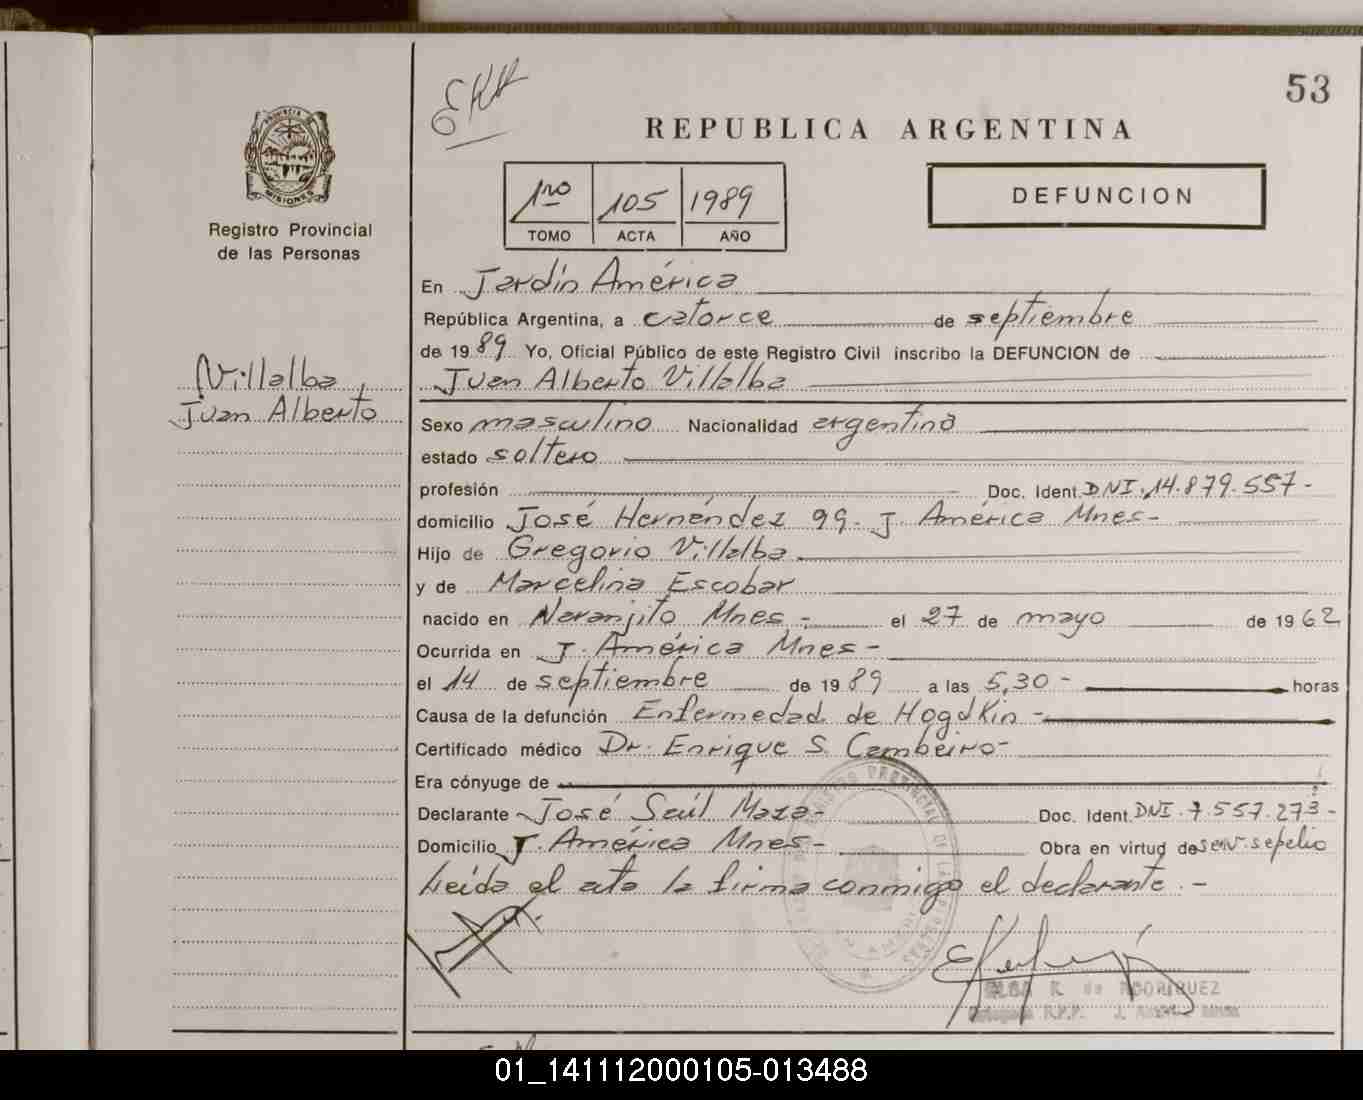 53
REPUBLICA ARGENTINA
PROVINCIA DE
MISIONES
Registro Provincial
de las Personas
1ro 105 1989
TOMO ACTA AÑO
DEFUNCION
Villalba,
Juan Alberto
En Jardín América
República Argentina, a catorce de septiembre
de 1989 Yo, Oficial Público de este Registro Civil inscribo la DEFUNCION de
Juan Alberto Villalba
Sexo masculino Nacionalidad argentina
estado soltero
profesión Doc. Ident. DNI. 14.879.557-
domicilio José Hernández 99- J. América Mnes-
Hijo de Gregorio Villalba.
y de Marcelina Escobar
nacido en Naranjito Mnes- el 27 de mayo de 1962
Ocurrida en J. América Mnes-
el 14 de septiembre de 1989 a las 5,30- horas
Causa de la defunción Enfermedad de Hogdkin-
Certificado médico Dr. Enrique S. Cambeiro-
Era cónyuge de
Declarante José Saúl Maza- Doc. Ident. DNI. 7.557.273-
Domicilio J. América Mnes- Obra en virtud de serv. sepelio
Leída el acta la firma conmigo el declarante.-
R. de RODRIGUEZ
R.P.P. J.
01_141112000105-013488